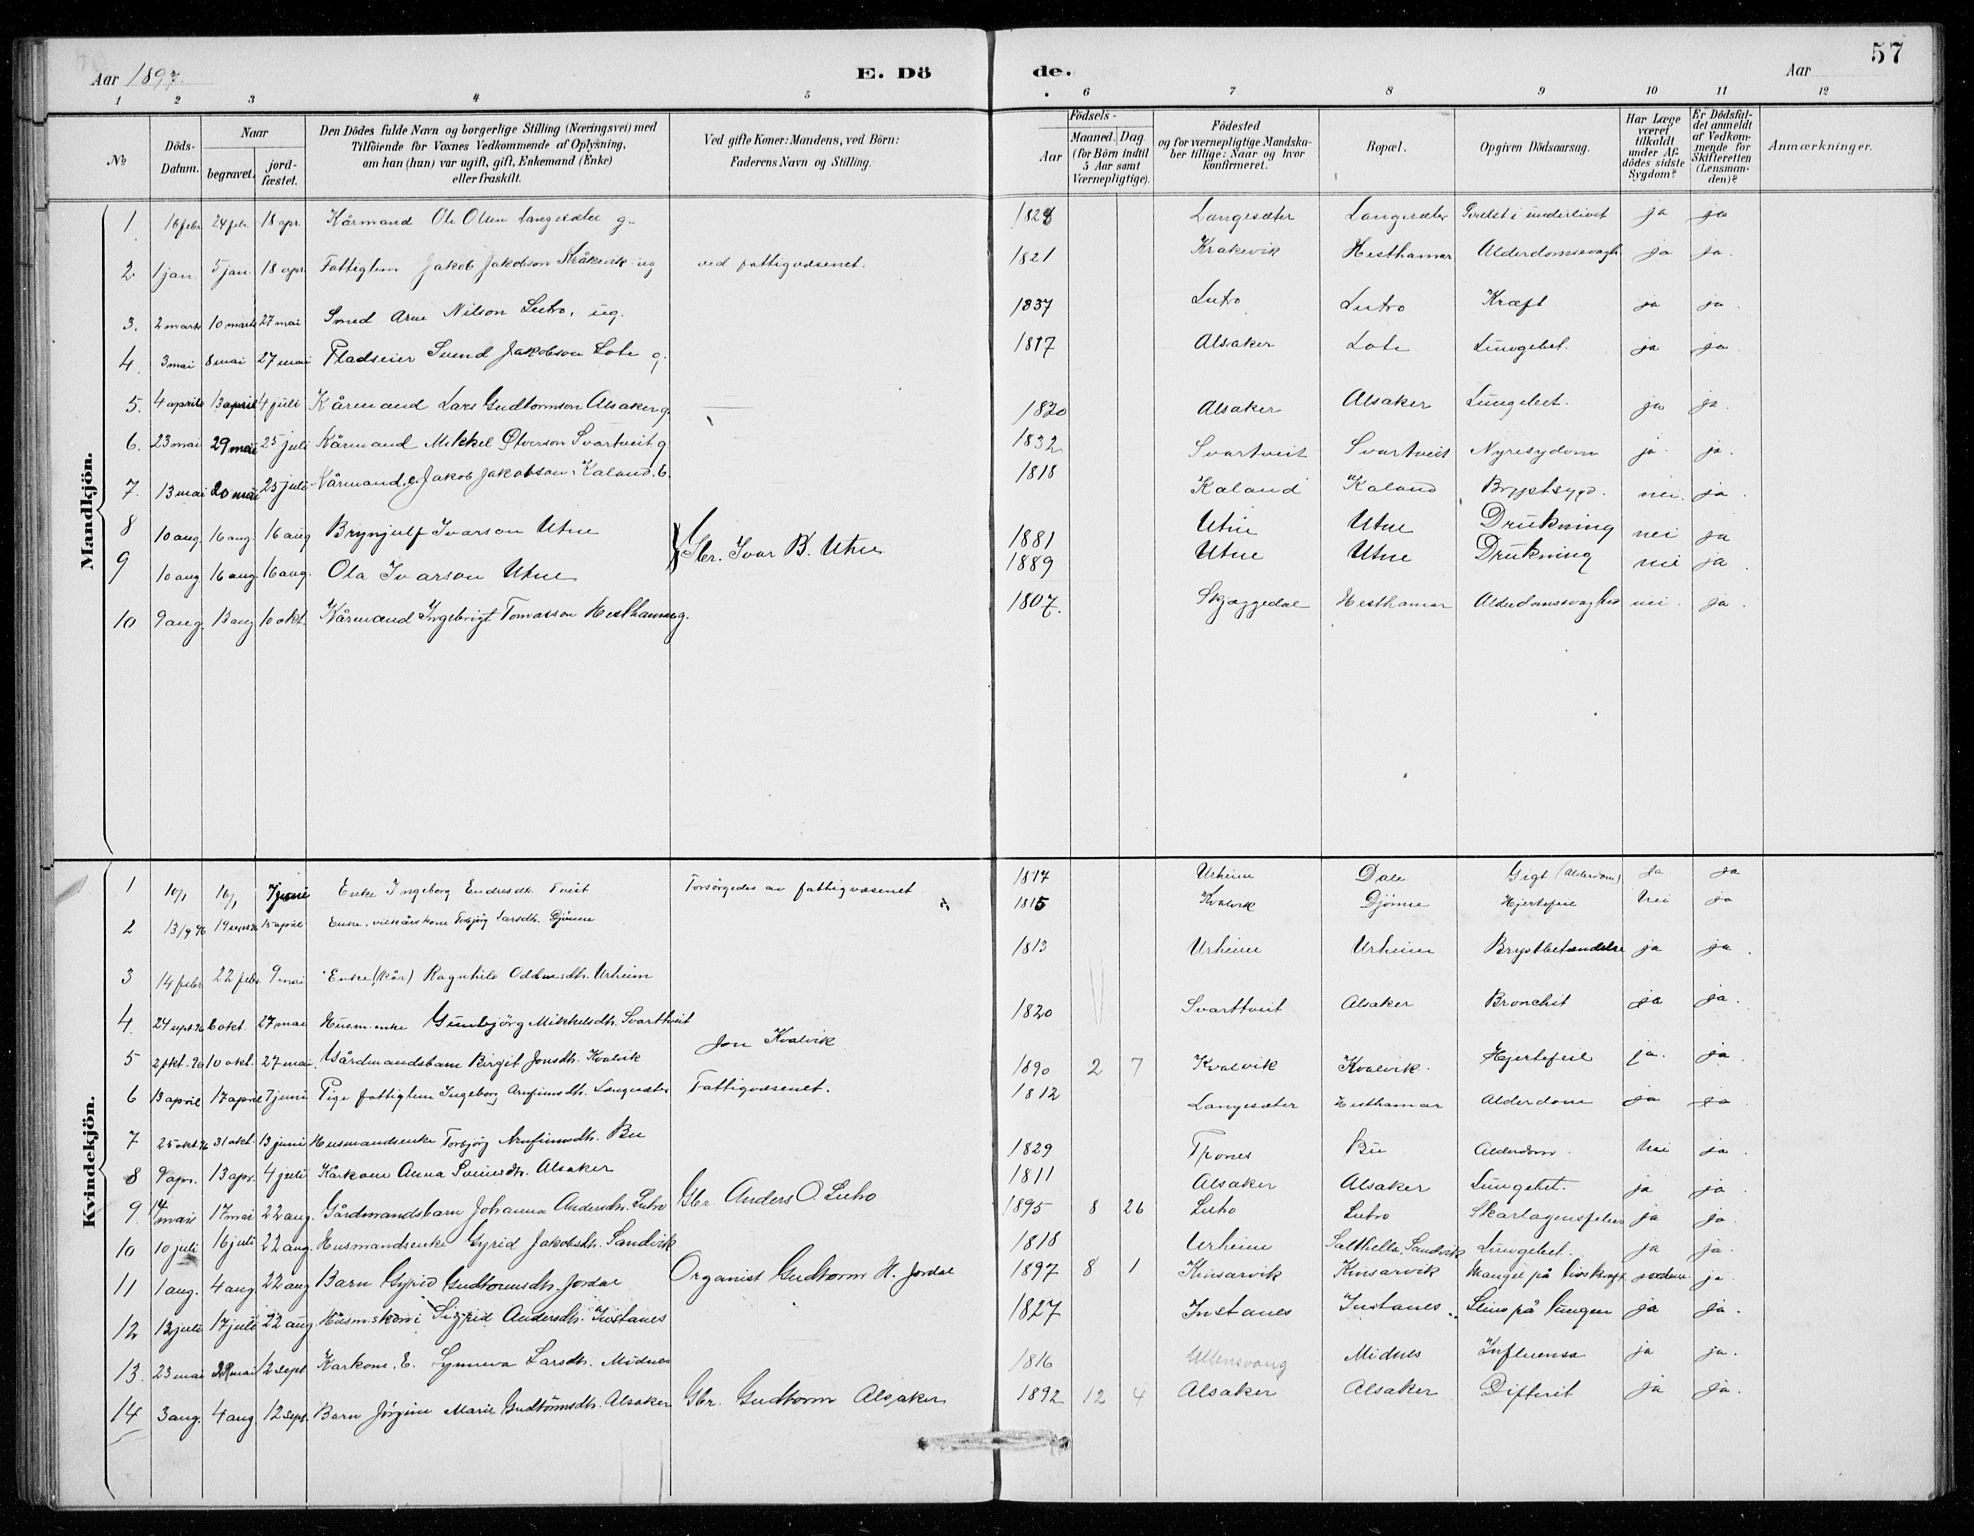 Aar 1897. E. Dö de. Aar 57
1 2 3 4 5 6 7 8 9 10 11 12
№ Döds-Datum. Naar begravet. jordfæstet. Den Dödes fulde Navn og borgerlige Stilling (Næringsvei) med Tilföiende for Voxnes Vedkommende af Oplysning, om han (hun) var ugift, gift, Enkemand (Enke) eller fraskilt. Ved gifte Koner: Mandens, ved Börn: Faderens Navn og Stilling. Födsels- Aar Maaned. Dag. (for Börn indtil 5 Aar samt Værnepligtige). Födested og for værnepligtige Mandskaber tillige: Naar og hvor konfirmeret. Bopæl. Opgiven Dödsaarsag. Har Læge været tilkaldt under Afdödes sidste Sygdom? Er Dödsfaldet anmeldt af Vedkommende for Skifteretten (Lensmanden)? Anmærkninger.
Mandkjön.
1 16 febr 24 febr. 18 apr. Kårmand Ole Olsen Langesæter g. 1828 Langesæter Langesæter Svulst i underlivet ja ja
2. 1 jan. 5 jan. 18 apr. Fattiglem Jakob Jakobson Kråkevik ug ved fattigvæsenet. 1821 Krakevik Hesthamar Alderdomssvagh. ja ja.
3. 2 marts 10 marts 27 mai Smed Arne Nilson Lutro, ug. 1837 Lutro Lutro Kræft ja ja.
4. 3 mai 8 mai 27 mai Pladseier Svend Jakobson Lote g. 1817 Alsaker Lote Lungebet. ja ja
5. 4 april 13 april 4 juli Kårmand Lars Gudtormson Alsaker g. 1820 Alsaker Alsaker Lungebet. ja ja.
6. 23 mai 29 mai 25 juli Kårmand Mikkel Olverson Svartveit g. 1832 Svartveit Svartveit Nyresygdom ja. ja.
7. 13 mai 20 mai 25 juli Kårmand, e, Jakob Jakobson Kaland. 1818 Kaland Kaland Brystsygd. nei. ja.
8 10 aug. 16 aug. 16 aug Brynjulf Ivarson Utne Gbr. Ivar B. Utne 1881 Utne Utne Drukning nei ja
9 10 aug 16 aug. 16 aug. Ola Ivarson Utne 1889 Utne Utne Drukning nei ja.
10 9 aug. 13 aug 10 okt. Kårmand Ingebrigt Tomasson Hesthamar g. 1807. Skjæggedal Hesthamar Alderdomssvaghed nei. ja.
Kvindekjön.
1 10/1 16/1 7 juni Enke Ingeborg Endresdt. Tveit Forsörgedes av fattigvæsenet 1814 Urheim Dale Gigt (Alderdom) Ja ja
2 13/9 96 19 sept 96 15 april Enke, vilkårskone Torbjörg Larsdt. Djönne 1815 Kvalvik Djönne Hjertefeil Nei ja
3 14 febr 22 febr. 9 mai Enke (kår) Ragnhild Oddmundt. Urheim 1813 Urheim Urheim Brystbetændelse ja ja.
4. 24 sept. 96 6 okt. 27 mai Husm.enke Gunbjörg Mikkelsdt. Svartveit 1820 Svarttveit Alsaker Bronchit ja ja.
5 2 okt. 96 10 okt. 27 mai. Gårdmandsbarn Birgit Jonsdt. Kvalvik Jon Kvalvik 1890 2 7 Kvalvik Kvalvik. Hjertefeil ja. ja.
6 13 april 17 april 7 juni Pige fattiglem Ingeborg Arnfinnsdt. Langesæter Fattigvæsenet. 1812 Langesæter Hesthamar Alderdom ja ja.
7 25 okt. 96 31 okt. 13 juni Husmandsenke Torbjörg Arnfinnsdt. Bu 1829 Trones Bu Alderdom. Nei ja.
8 9 apr. 13 apr. 4 juli Kårkone Anna Svensdt. Alsaker 1811 Alsaker Alsaker Lungebet. ja ja.
9. 14 mai 17 mai 22 aug. Gårdmandsbarn Johanna Andersdt. Lutro Gbr. Anders O. Lutro 1895 8 26 Lutro Lutro Skarlagensfeber ja ja.
10 10 juli 16 juli 22 aug. Husmandsenke Gyrid Jakobsdt. Sandvik 1818 Urheim Salthella, Sandvik Lungebet. ja ja.
11 1 aug. 4 aug. 22 aug Barn Gyrid Gudtormsdt. Jordal Organist Gudtorm H. Jordal 1897 8 1 Kinsarvik Kinsarvik Mangel på livskraft ja.
12 12 juli 17 juli 22 aug Husmskone Sigrid Andersdt. Instanes 1827 Instanes Instanes. Slim på lungen ja ja.
13. 23 mai mai 12 sept Kårkone, E. Synneva Larsdt. Midnes 1816 Ullensvang Midnes Influensa ja ja.
14 3 aug. 4 aug 12 sept. Barn Jörgine Marie Gudtormsdt. Alsaker Gbr. Gudtorm Alsaker 1892 12 4 Alsaker Alsaker Difterit ja ja.